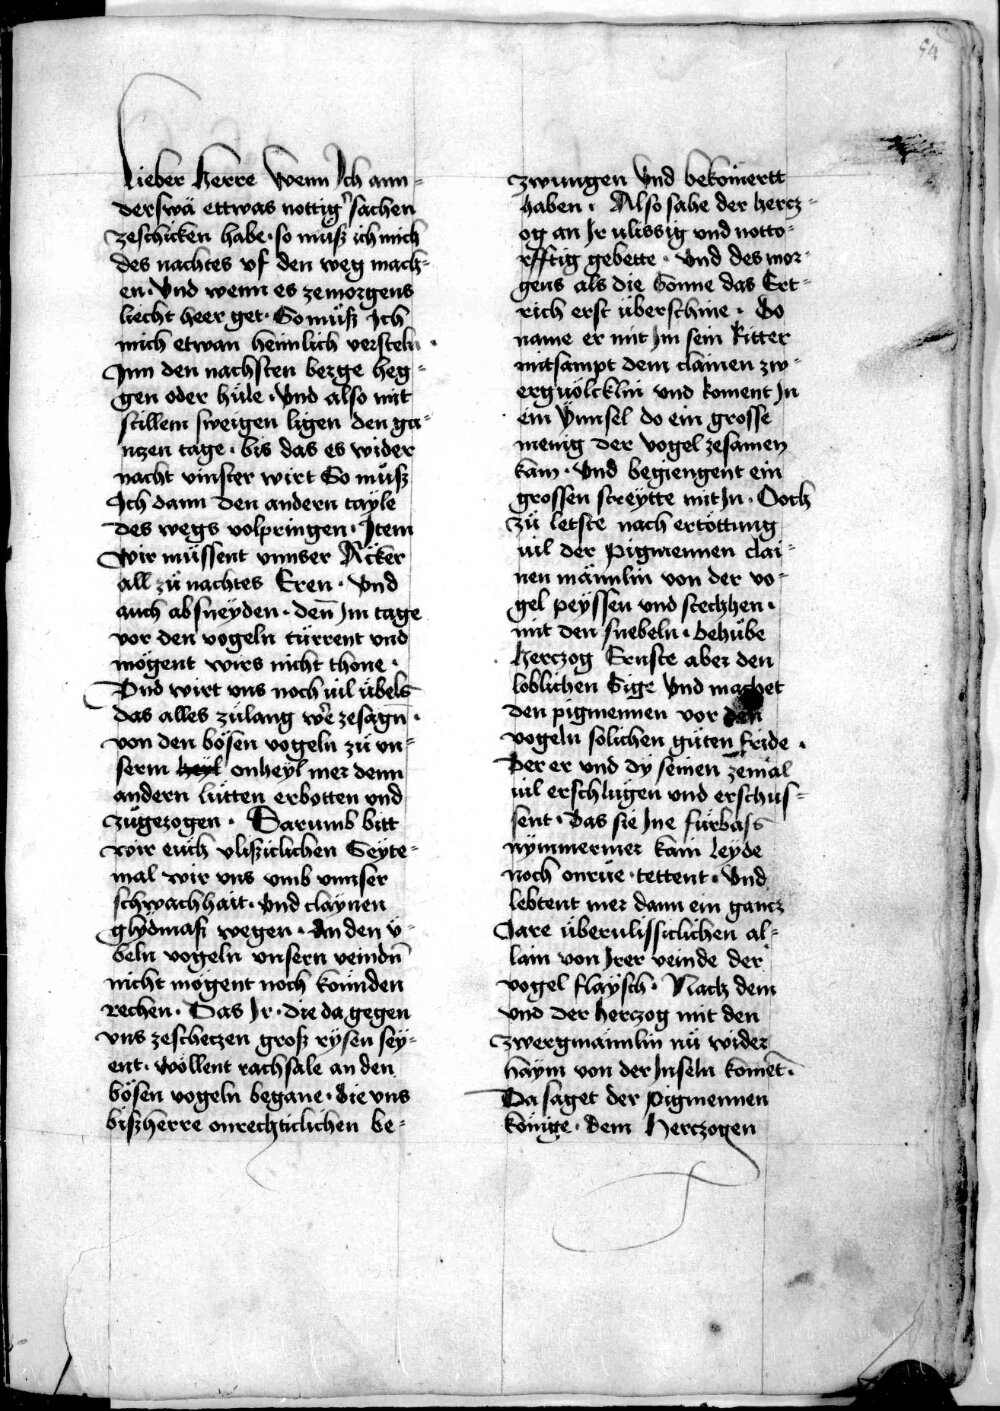 54
Lieber herre Wenn Ich ann-
derswä ettwas nottig' sachen
zeschicken habe · so müß ich mich
des nachtes vf den weg mach-
en · Vnd wenn es zemorgens
liecht heer get · So müß Ich
mich etwan heimlich versteln ·
Inn den nachsten berge heg-
gen oder hüle · Vnd also mit
stillem sweigen ligen den ga-
nzen tage · bis das es wider
nacht vinster wirt So müß
Ich dann den andern tayle
des wegs volpringen · Item
Wir müssent vnnser Äcker
all zü nachtes Eren · Vnd
auch absneyden · den̄ Im tage
vor den vogeln türrent vnd
mögent wirs nicht thone ·
Vnd wirt vns noch uil übels
das alles zülang we͛ zesagn̄ ·
von den bösen vogeln zü vn-
serm heyl onheyl mer denn
andern lütten erbotten vnd
zügezogen · Darumb bitt
wir euch vlisziclichen Seyte-
mal wir vns vmb vnnser
schwachhait · Vnd claynen
glydmasz wegen · An den ü-
beln vogeln vnsern veindn̄
nicht mögent noch künnden
rechen · Das Ir · die da gegen
vns zeschetzen groß rysen sey-
ent · wöllent rachsale an den
bösen vogeln begane · die vns
biszherre onrechticlichen be-
zwungen Vnd bekom̄ertt
haben · Also sahe der hercz-
og an Ir ulissig vnd notto-
rfftig gebette · Vnd des mor-
gens als die Sonne das Ert-
rich erst überschine · Do
name er mit Im sein Ritter
mitsampt dem clainen zw-
erguölcklin vnd koment In
ein Ynnsel do ein grosse
menig der vogel zesamen
kam · Vnd begiengent ein
grossen streytte mit In · Doch
zü letste nach ertöttung
uil der pigmennen clai-
nen männlin von der vo-
gel peyssen vnd stechhen ·
mit den snebeln · behübe
herczog Ernste aber den
loblichen Sige Vnd machet
den pigmennen vor den
vogeln solichen güten fride ·
Der er vnd dy seinen zemal
uil erschlügen vnd erschus-
sent · Das sie Ine fürbass
nymmermer kain leyde
noch onrüe · tettent · Vnd
lebtent mer dann ein gancz
Jare überulissiclichen al-
lain von Irer veinde der
vogel flaysch · Nach dem
vnd der herczog mit den
zwergmännlin nü wider
haym von der Inseln koment ·
Da saget der pigmennen
künige · dem herczogen